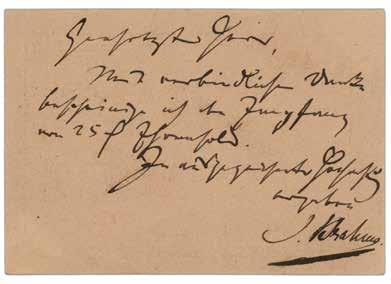 Geehrtester Herr,
Mit verbindlichem Danke
bescheinige ich den Empfang
von 25 f Ehrensold.
In ausgezeichneter Hochachtung
ergeben
J. Brahms.